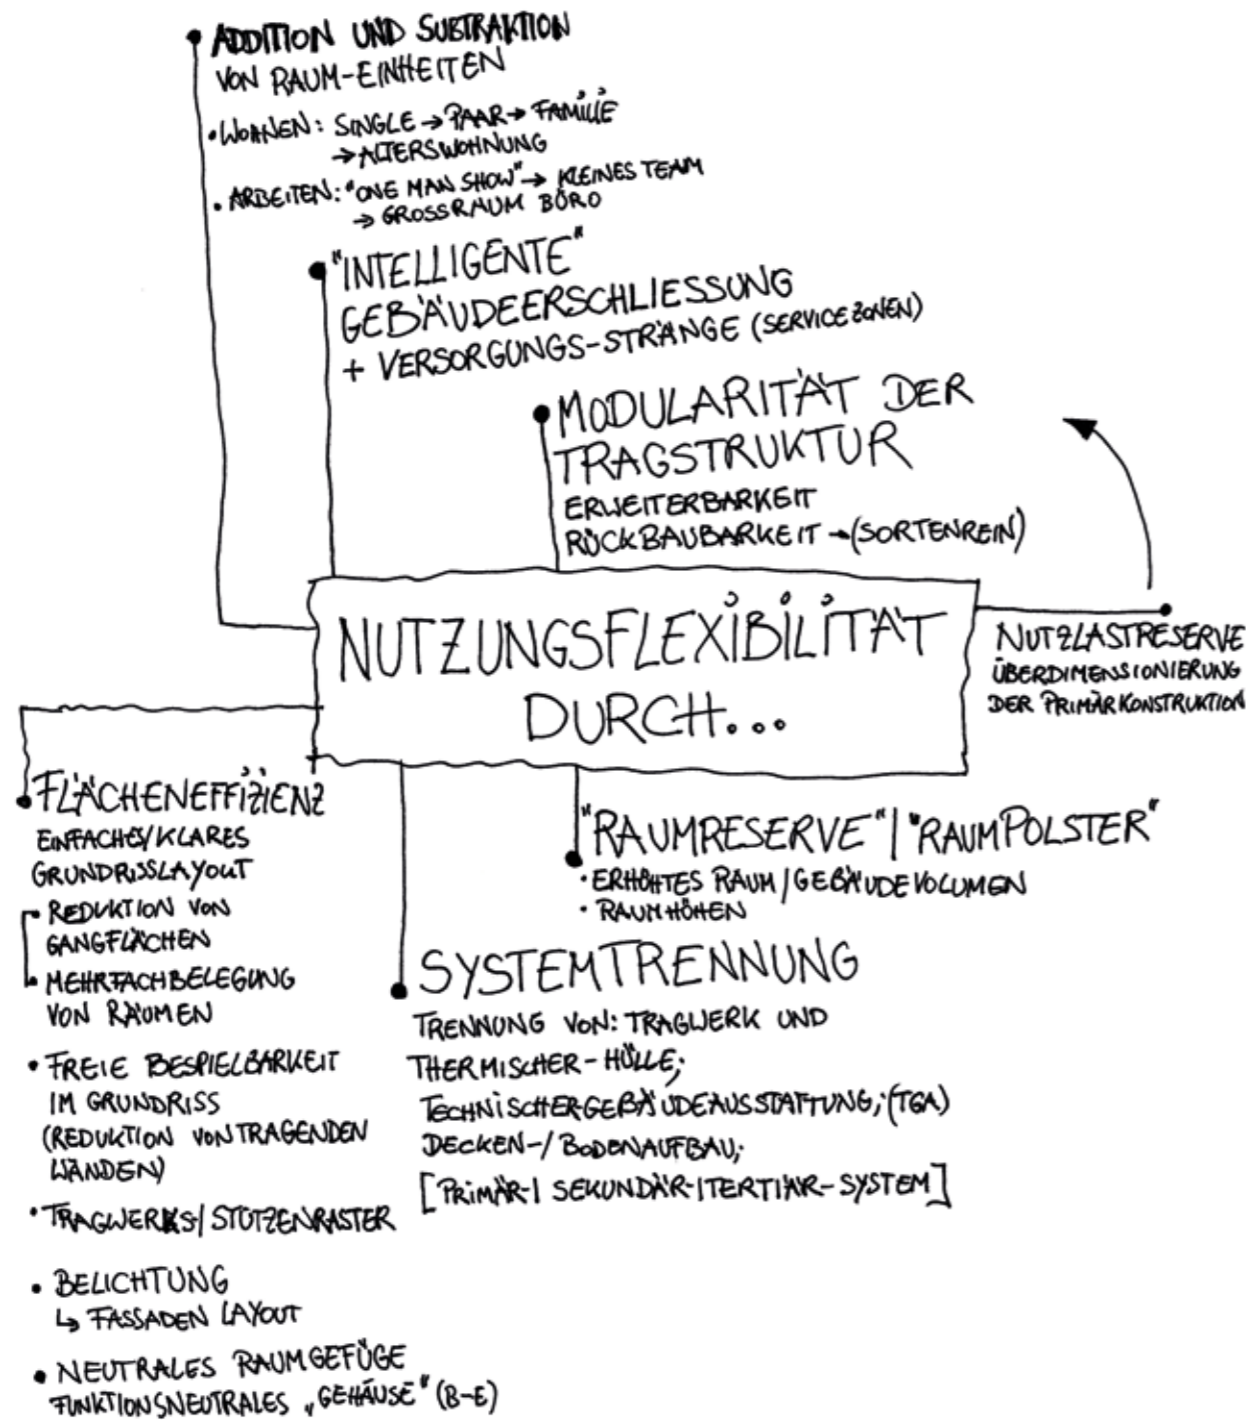 ADDITION UND SUBTRAKTION
VON RAUM-EINHEITEN
• WOHNEN: SINGLE → PAAR → FAMILIE
→ ALTERSWOHNUNG
• ARBEITEN: "ONE MAN SHOW" → KLEINES TEAM
→ GROSSRAUM BÜRO
"INTELLIGENTE"
GEBÄUDEERSCHLIESSUNG
+ VERSORGUNGS-STRÄNGE (SERVICEZONEN)
MODULARITÄT DER
TRAGSTRUKTUR
ERWEITERBARKEIT
RÜCKBAUBARKEIT → (SORTENREIN)
NUTZUNGSFLEXIBILITÄT
DURCH...
NUTZLASTRESERVE
ÜBERDIMENSIONIERUNG
DER PRIMÄRKONSTRUKTION
FLÄCHENEFFIZIENZ
EINFACHES/KLARES
GRUNDRISSLAYOUT
• REDUKTION VON
GANGFLÄCHEN
• MEHRFACHBELEGUNG
VON RÄUMEN
• FREIE BESPIELBARKEIT
IM GRUNDRISS
(REDUKTION VON TRAGENDEN
WÄNDEN)
• TRAGWERKS-/STÜTZENRASTER
• BELICHTUNG
↳ FASSADEN LAYOUT
• NEUTRALES RAUMGEFÜGE
FUNKTIONSNEUTRALES „GEHÄUSE" (B-E)
"RAUMRESERVE" | "RAUMPOLSTER"
• ERHÖHTES RAUM/GEBÄUDEVOLUMEN
• RAUMHÖHEN
SYSTEMTRENNUNG
TRENNUNG VON: TRAGWERK UND
THERMISCHER-HÜLLE;
TECHNISCHERGEBÄUDEAUSSTATTUNG; (TGA)
DECKEN-/BODENAUFBAU;
[PRIMÄR-| SEKUNDÄR-|TERTIÄR-SYSTEM]